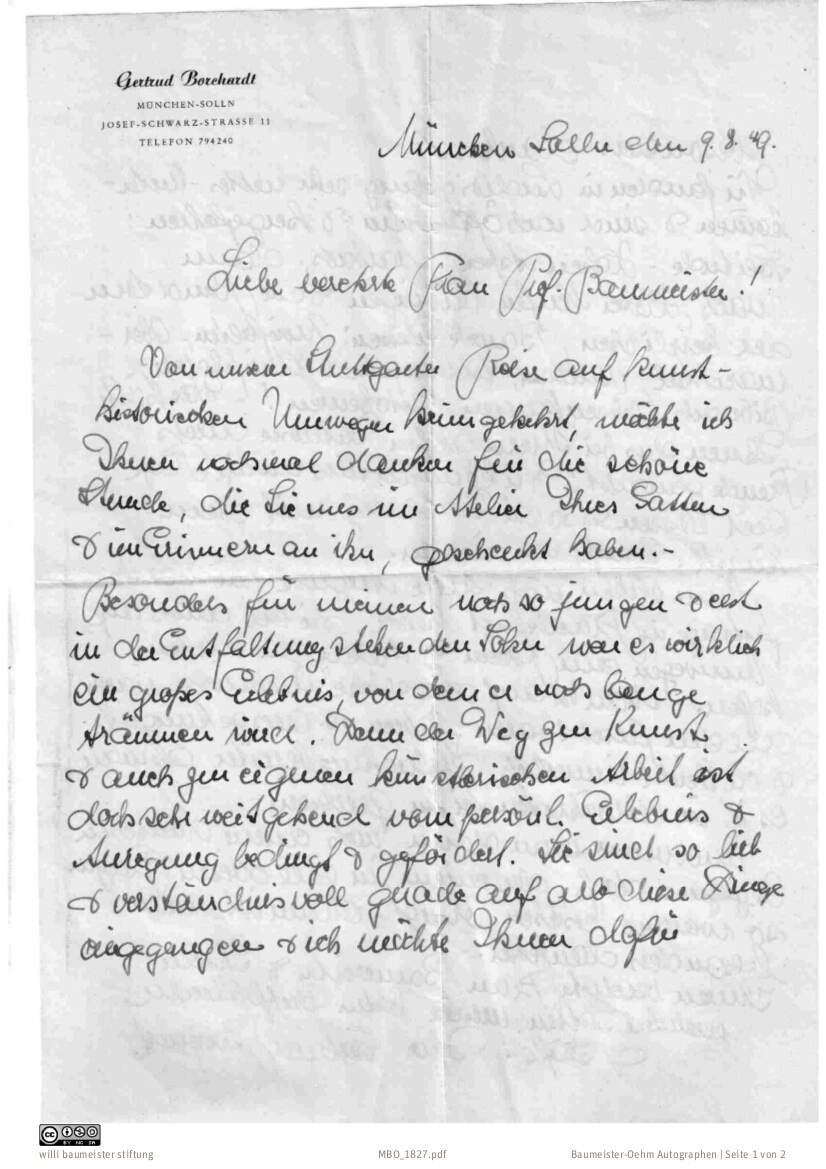 Gertrud Borchardt
MÜNCHEN-SOLLN
JOSEF-SCHWARZ-STRASSE 11
TELEFON 794240
München Solln den 9. 8. 49.
Liebe verehrte Frau Prof. Baumeister!
Von unserer Stuttgarter Reise auf kunst-
historischen Umwegen heimgekehrt, möchte ich
Ihnen nochmal danken für die schöne
Stunde, die Sie uns im Atelier Ihres Gatten
& im Erinnern an ihn, geschenkt haben.-
Besonders für meinen noch so jungen & erst
in der Entfaltung stehenden Sohn war es wirklich
ein großes Erlebnis, von dem er noch lange
träumen wird. Denn der Weg zur Kunst
& auch zur eigenen künstlerischen Arbeit ist
doch sehr weitgehend vom persönl. Erlebnis &
Anregung bedingt & gefördert. Sie sind so lieb
& verständnisvoll gerade auf all diese Dinge
eingegangen & ich möchte Ihnen dafür
willi baumeister stiftung
MBO_1827.pdf
Baumeister-Oehm Autographen | Seite 1 von 2